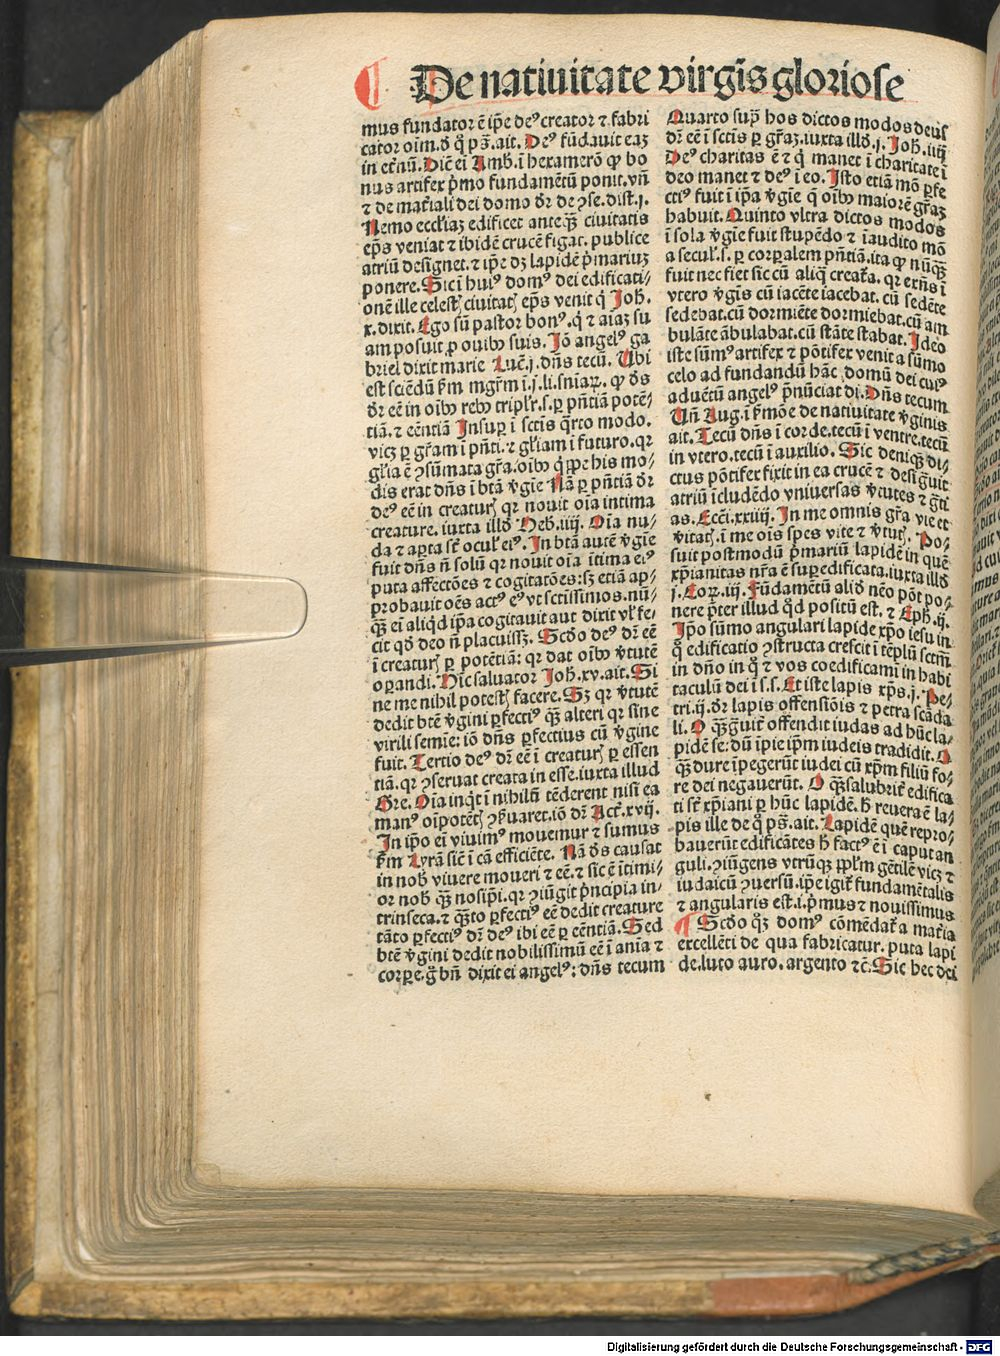 ¶ De natiuitate virgīs gloriose
mus fundator ē ip̄e deꝰ creator ⁊ fabri
cator oīm.d̄ q̊ p̄s̄.ait. Deꝰ fūdauit eaꝫ
in et̄nū. Dic̄ ei Amb̄.ī hexamerō ꝙ bo
nus artifex p̄mo fundamētū ponit.vn̄
⁊ de mat̄iali dei domo d̄r de ꝯse.dist.j.
Nemo eccl̄iaꝫ edificet anteqꝫ̄ ciuitatis
ep̄s veniat ⁊ ibidē crucē figat. publice
atriū designet.⁊ ip̄e dꝫ lapidē p̄mariuꝫ
ponere. Sic ī huiꝰ domꝰ dei edificati⸗
onē ille celestꝭ ciuitatꝭ ep̄s venit q̇ Joh̄.
x.dixit. Ego sū pastor bonꝰ.q̇ ⁊ aīaꝫ su
am posuit ꝓ ouibꝰ suis. Jō angelꝰ ga
briel dixit marie Luc̄.j.dn̄s tecū. Ubi
est sciēdū s̄m mgr̄m ī.j.li.sn̄iaꝝ. ꝙ d̄s
d̄r eē in oībꝰ rebꝰ triplr̄.s.ꝑ pn̄tiā potē⸗
tiā.⁊ eēntiā Insuꝑ ī sctīs q̄rto modo.
vicꝫ ꝑ gr̄am ī pn̄ti.⁊ gl̄iam ī futuro.qꝛ
gl̄ia ē ꝯsūmata gr̄a.oībꝰ q̇ꝓpe his mo⸗
dis erat dn̄s ī btā v̄gīe Nā ꝑ pn̄tiā d̄r
deꝰ eē in creaturꝭ qꝛ nouit oīa intima
creature.iuxta illd̄ Heb̄.iiij. Oīa nu⸗
da ⁊ aꝑta st̄ oculꝭ eiꝰ. In btā autē v̄gīe
fuit dn̄s n̄ solū qꝛ nouit oīa ītima eiꝰ
puta affectōes ⁊ cogitatōes:sꝫ etiā ap⸗
probauit oēs actꝰ eꝰ vt sctīssimos.nū⸗
qꝫ̄ ei aliqd̄ ip̄a cogitauit aut dixit vl̓ fe⸗
cit qd̄ deo n̄ placuissꝫ. Scd̄o deꝰ d̄r eē
ī creaturꝭ ꝑ potētiā: qꝛ dat oībꝰ v̄tutē
oꝑandi. Hic saluator Joh̄.xv.ait. Si
ne me nihil potestꝭ facere. Sꝫ qꝛ v̄tutē
dedit btē v̄gini ꝑfectiꝰ qꝫ̄ alteri qꝛ sine
virili semīe: iō dn̄s ꝑfectius cū v̄gine
fuit. Tertio deꝰ d̄r eē ī creaturꝭ ꝑ essen
tiā.qꝛ ꝯseruat creata in esse.iuxta illud
Gre. Oīa inqt̄ ī nihilū tēderent nisi ea
manꝰ oīpotētꝭ ꝯseruaret.iō d̄r Act̄.xvij.
In ip̄o ei viuimꝰ mouemur ⁊ sumus
s̄m Lyrā sic̄ ī cā efficiēte. Nā d̄s causat
in nob̄ viuere moueri ⁊ eē.⁊ sic ē ītimi⸗
or nob̄ qꝫ̄ nosip̄i.qꝛ ꝯiūgit p̄ncipia in⸗
trinseca.⁊ qꝫ̄to ꝑfectiꝰ eē dedit creature
tāto ꝑfectiꝰ d̄r deꝰ ibi eē ꝑ eēntiā. Sed
btē v̄gini dedit nobilissimū eē ī aīa ⁊
corꝑe.g̊ bn̄ dixit ei angelꝰ: dn̄s tecum
Quarto suꝑ hos dictos modos deus
d̄r eē ī sctīs ꝑ gr̄aꝫ.iuxta illd̄.j. Joh̄.iiij
Deꝰ charitas ē ⁊ q̇ manet ī charitate ī
deo manet ⁊ deꝰ ī eo. Isto etiā mō ꝑfe
ctiꝰ fuit ī ip̄a v̄gīe q̄ oībꝰ maiorē gr̄aꝫ
habuit. Quinto vltra dictos modos
ī sola v̄gīe fuit stupēdo ⁊ īaudito mō
a seculꝭ.s.ꝑ corꝑalem pn̄tiā.ita ꝙ nūqꝫ̄
fuit nec fiet sic cū aliq̄ creat̄a.qꝛ ex̄ns ī
vtero v̄gīs cū iacēte iacebat.cū sedēte
sedebat.cū dormiēte dormiebat.cū am
bulāte ābulabat.cū stāte stabat. Ideo
iste sūmꝰ artifex ⁊ pōtifex venit a sūmo
celo ad fundandū hāc domū dei cuiꝰ
aduētū angelꝰ p̄nūciat di. Dn̄s tecum
Un̄ Aug.ī s̄mōe de natiuitate v̄ginis
ait. Tecū dn̄s ī corde.tecū ī ventre.tecū
in vtero.tecū ī auxilio. Sic deniqꝫ di⸗
ctus pōtifex fixit in ea crucē ⁊ desig̃uit
atriū īcludēdo vniuersas v̄tutes ⁊ gr̄ti
as. Ecc̄i.xxiiij. In me omnis gr̄a vie et
v̄itatꝭ.ī me oīs spes vite ⁊ v̄tutꝭ. Po⸗
suit postmodū p̄mariū lapidē in quē
xp̄ianitas nr̄a ē suꝑedificata.iuxta illd̄
j. Cor̄.iij. Fūdamētū aliđ nēo pōt po⸗
nere p̄ter illud qd̄ positū est.⁊ Eph̄.ij.
Ip̄o sūmo angulari lapide xp̄o iesu in
q̊ edificatio ꝯstructa crescit ī tēplū sctm̄
in dn̄o in q̊ ⁊ vos coedificamī in habi
taculū dei ī s.s. Et iste lapis xp̄s.j. Pe⸗
tri.ij.d̄r lapis offensiōis ⁊ petra scāda
li. O qꝫ̄ g̃uit̄ offendit iudas ad hūc la⸗
pidē se: dū īpie ip̄m iudeis tradidit. O
qꝫ̄ dure īpegerūt iudei cū xp̄m filiū fo⸗
re dei negauerūt. O qꝫ̄ salubrit̄ edifica
ti st̄ xp̄iani ꝑ hūc lapidē. h̄ reuera ē la⸗
pis ille de q̊ p̄s̄.ait. Lapidē quē repro⸗
bauerūt edificātes h̄ factꝰ ē ī caput an
guli.ꝯiūgens vtrūqꝫ ppl̄m gētilē vicꝫ ⁊
iudaicū ꝯuersū.ip̄e igit̄ fundamētalis
⁊ angularis est.ī.p̄mus ⁊ nouissimus
¶ Scd̄o q̊ꝫ domꝰ cōmēdat̄ a mat̄ia
excellēti de qua fabricatur.puta lapi
de.luto auro.argento ⁊c̄. Sic hec dei
Digitalisierung gefördert durch die Deutsche Forschungsgemeinschaft - DFG